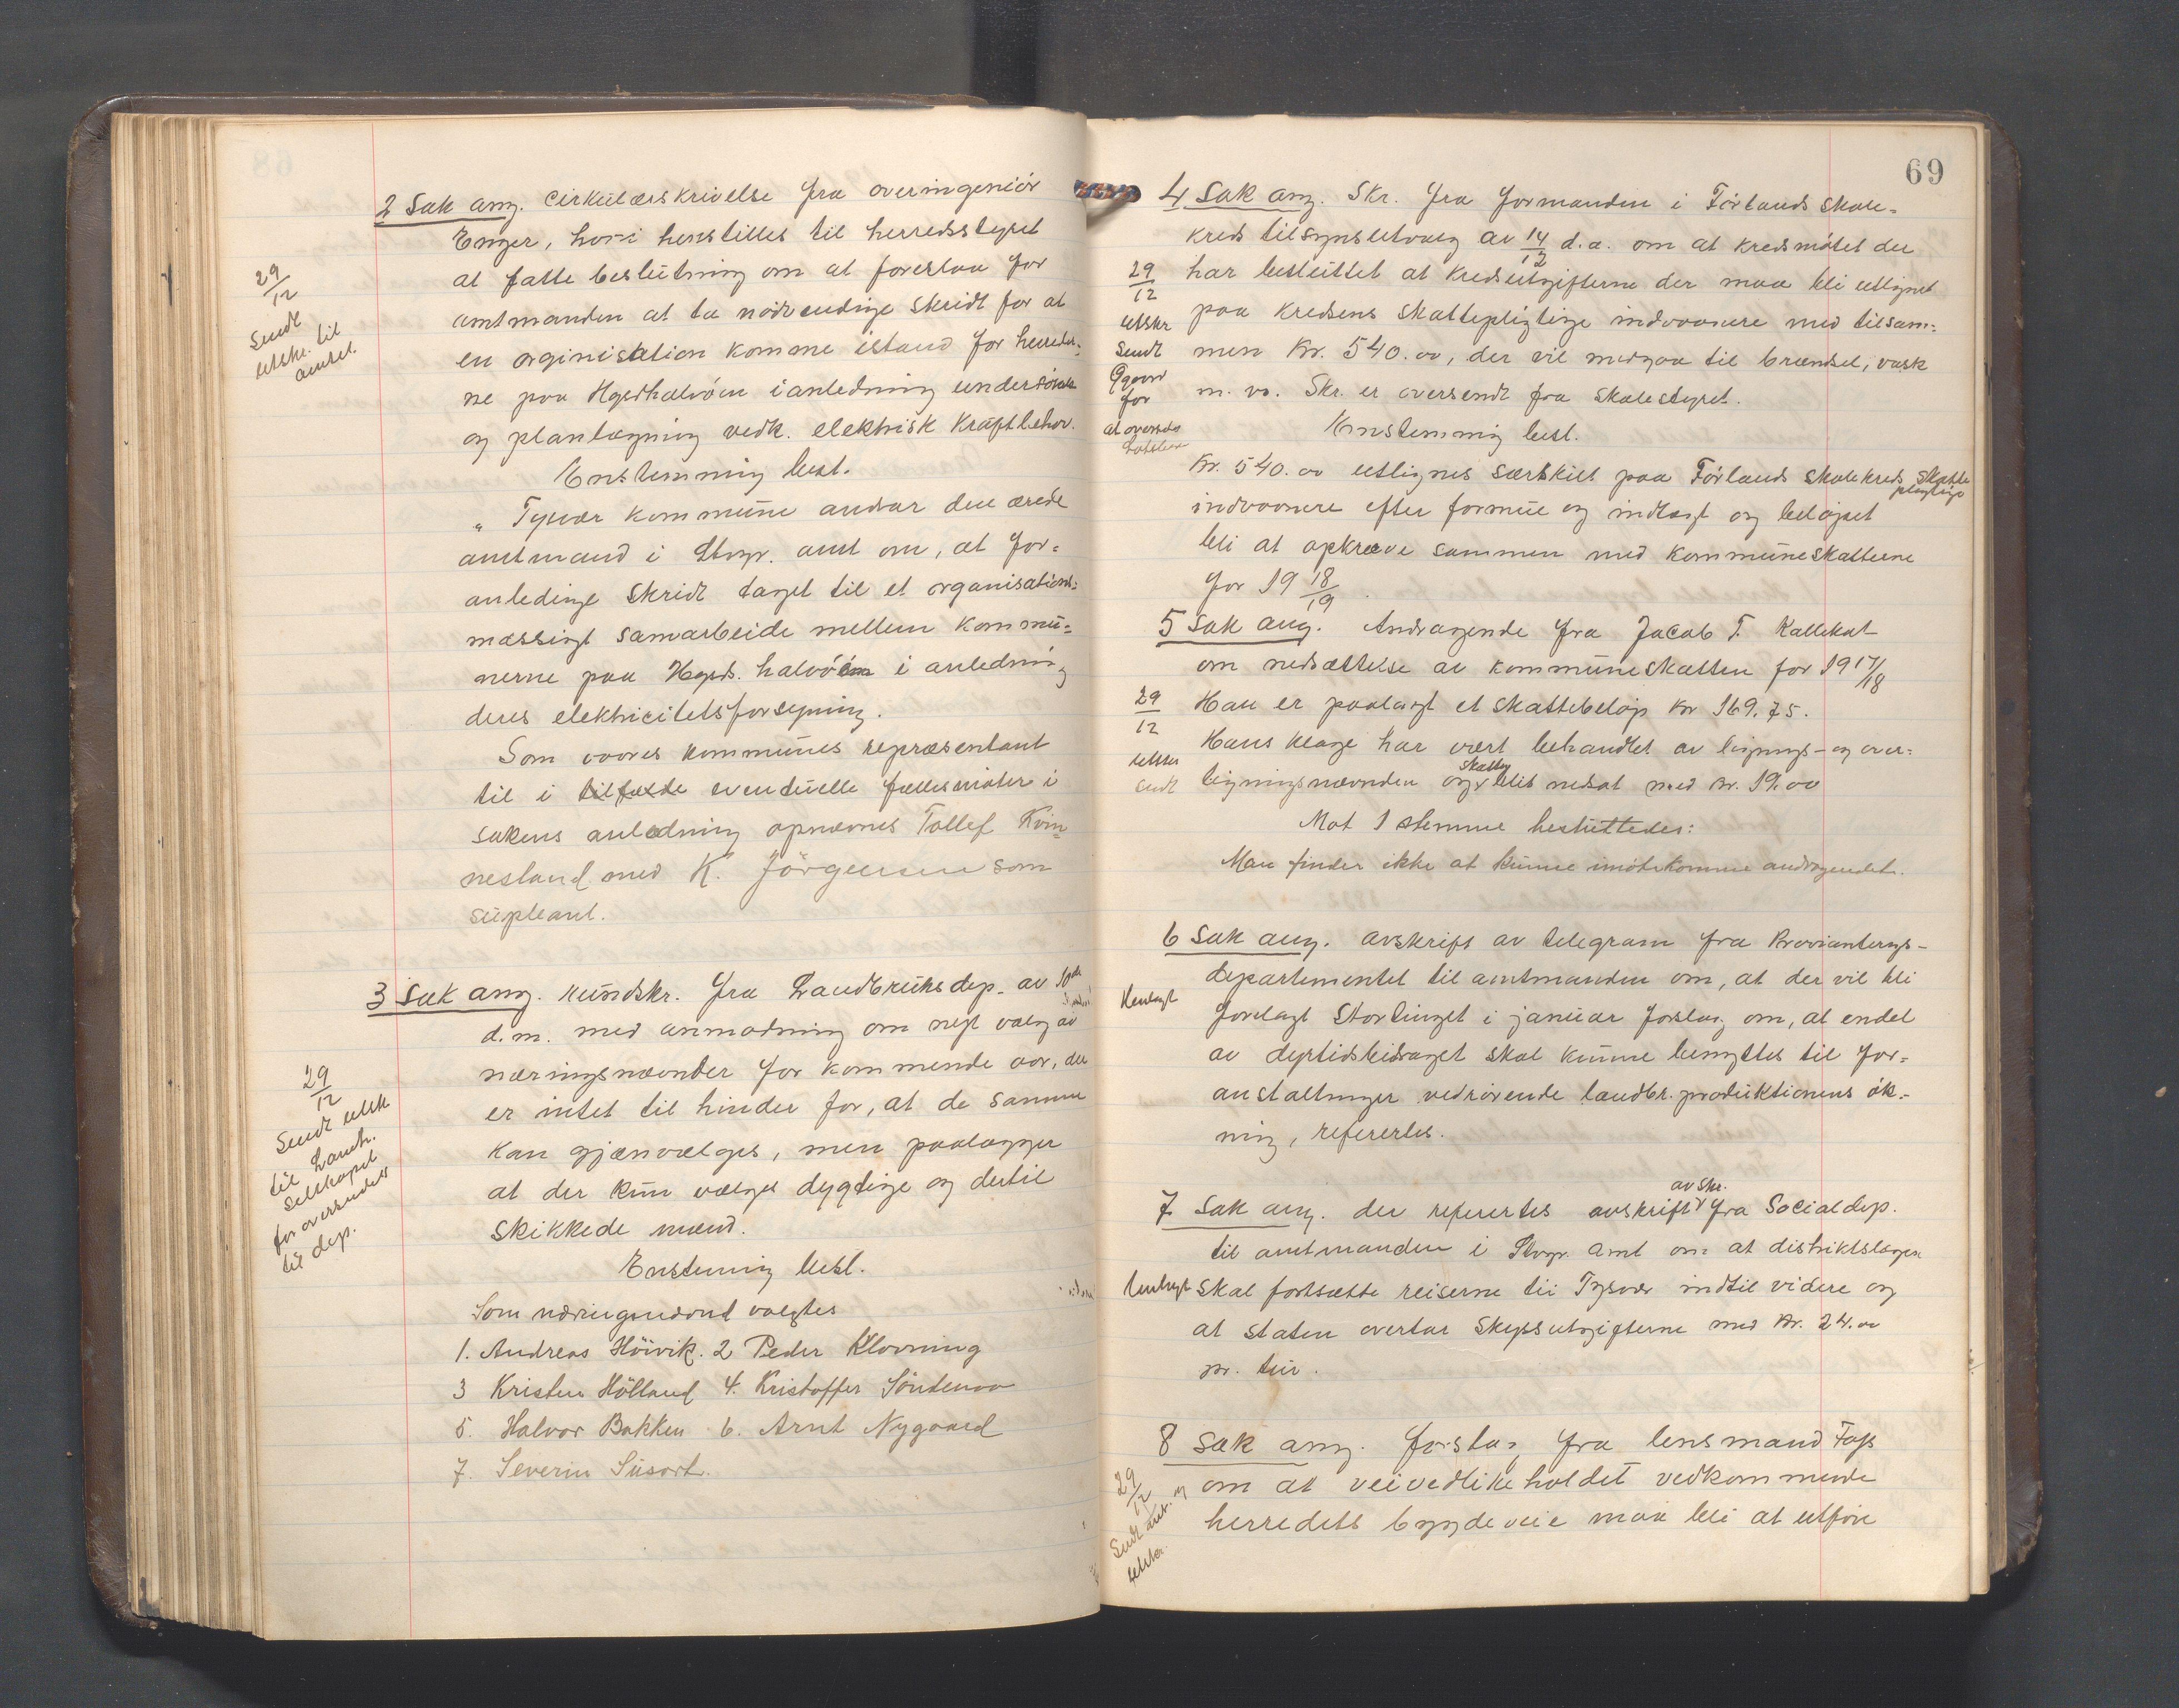 2 Sak ang. Cirkulærskrivelse fra overingeniör
Enger, hvori henstilles til herredsstyret
at fatte beslutning om at foreslaa for
amtmanden at ta nödvendige skridt for at
en orginisation komme istand for herreder-
ne paa Hgsdhalvöen i anledning undersökelse
og planlægning vedk. elektrisk kraftbehov.
Enstemmig besl.
„ Tysvær kommune andrar den ærede
amtmand i Stvgr. amt om, at for-
anledige skridt taget til et organisations-
mæssigt samarbeide mellem kommu-
nerne paa Hgsds. halvöen i anledning
deres elektricitetsforsyning.
Som vaares kommunes repræsentant
til i tilfælde eventuelle fællesmöter i
sakens anledning opnævnes Tollef Kvin-
nesland med K. Jörgensen som
supleant.
29/12
Sendt
utskr. til
amtet.
3 Sak ang. rundskr. fra Landbruksdep. av 10de
d.m. med anmodning om nyt valg av
næringsnævnder for kommende aar, der
er intet til hinder for, at de samme
kan gjænvælges, men paalægger
at der kun vælges dygtige og dertil
skikkede mænd.
Enstemmig besl.
Som næringsnævnd valgtes
1. Andreas Höivik. 2 Peder Klovning
3 Kristen Hölland 4. Kristoffer Söndenaa
5. Halvor Bakken 6. Arnt Nygaard
7. Severin Susort.
29/12
Sendt utsk
til Landh.
Selskapet
for oversendelse
til dep.
69
4 Sak ang. Skr. fra formanden i Förlands skole-
kreds tilsynsutvalg av 14/12 d.a. om at kredsmötet der
har besluttet at kredsutgifterne der maa bli utlignet
paa kredsens skattepligtige indvaanere med tilsam-
men kr. 540.00, der vil medgaa til brændsel, vask
m. v. Skr. er oversendt fra skolestyret.
Enstemmig besl.
Kr. 540.00 utlignes særskilt paa Förlands skolekreds skatte
pligtige
indvaanere efter formue og indtægt og belöpet
bli at opkræve sammen med kommuneskatterne
for 1918/19.
29/12
utskr
Sendt
for
at oversendes
5 Sak ang. Andragende fra Jacob T. Kallekot
om nedsættelse av kommuneskatten for 1917/18
Han er paalagt et skattebelöp kr 169.75.
Hans klage har vært behandlet av lignings- og over-
ligningsnævnden og skatten blit nedsat med kr. 19.00
Mot 1 stemme besluttedes:
Man finder ikke at kunne imötekomme andragendet.
29/12
utskr
sendt
6 Sak ang. avskrift av telegram fra Provianterings-
departementet til amtmanden om, at der vil bli
forelagt Stortinget i januar forslag om, at endel
av dyrtidsbidraget skal kunne benyttes til for-
anstaltninger vedrörende landbr. produktionens ök-
ning, referertes.
Henlagt
7. Sak ang. der referertes avskrift av skr. fra Socialdep.
til amtmanden i Stvgr. amt om at distriktslægen
skal fortsætte reiserne til Tysvær indtil videre og
at staten overtar skyssutgifterne med kr. 24.00
pr. tur.
Henlagt
8 Sak ang. forslag fra lensmand Foss
om at veivedlikeholdet vedkommende
herredets bygdeveie maa bli at utföre
29/12
Sendt amt. og
utskr.